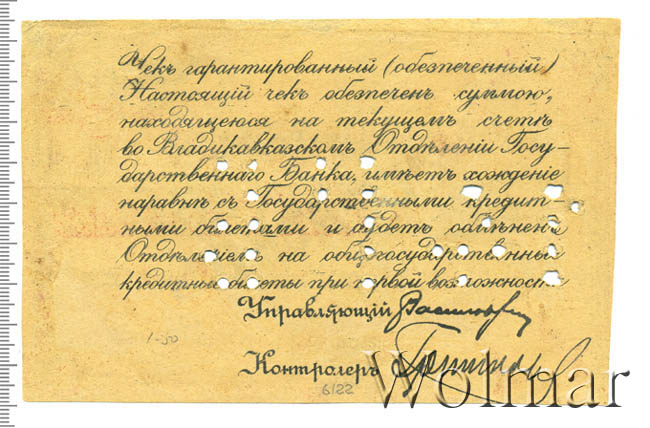 Чекъ гарантированный (обезпеченный)
Настоящій чекъ обезпеченъ суммою,
находящеюся на текущемъ счетѣ
во Владикавказскомъ Отдѣленіи Госу-
дарственнаго Банка, имѣетъ хожденіе
наравнѣ съ Государственными кредит-
ными билетами и будетъ обмѣненъ
Отдѣленіемъ на общегосударственные
кредитные билеты при первой возможности
Управляющій
Контролеръ
1-50
6/22
Wolmar